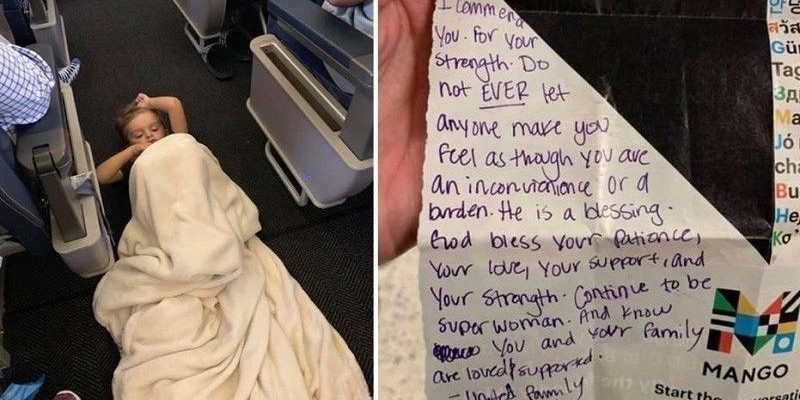 I commend
You. For your
strength. Do
not EVER let
anyone make you
feel as though you are
an inconvinience or a
burden. He is a blessing.
God bless your patience,
your love, your support, and
your strength. Continue to be
super woman. And know
You and your family
are loved & supported.
- United family
MANGO
Start the